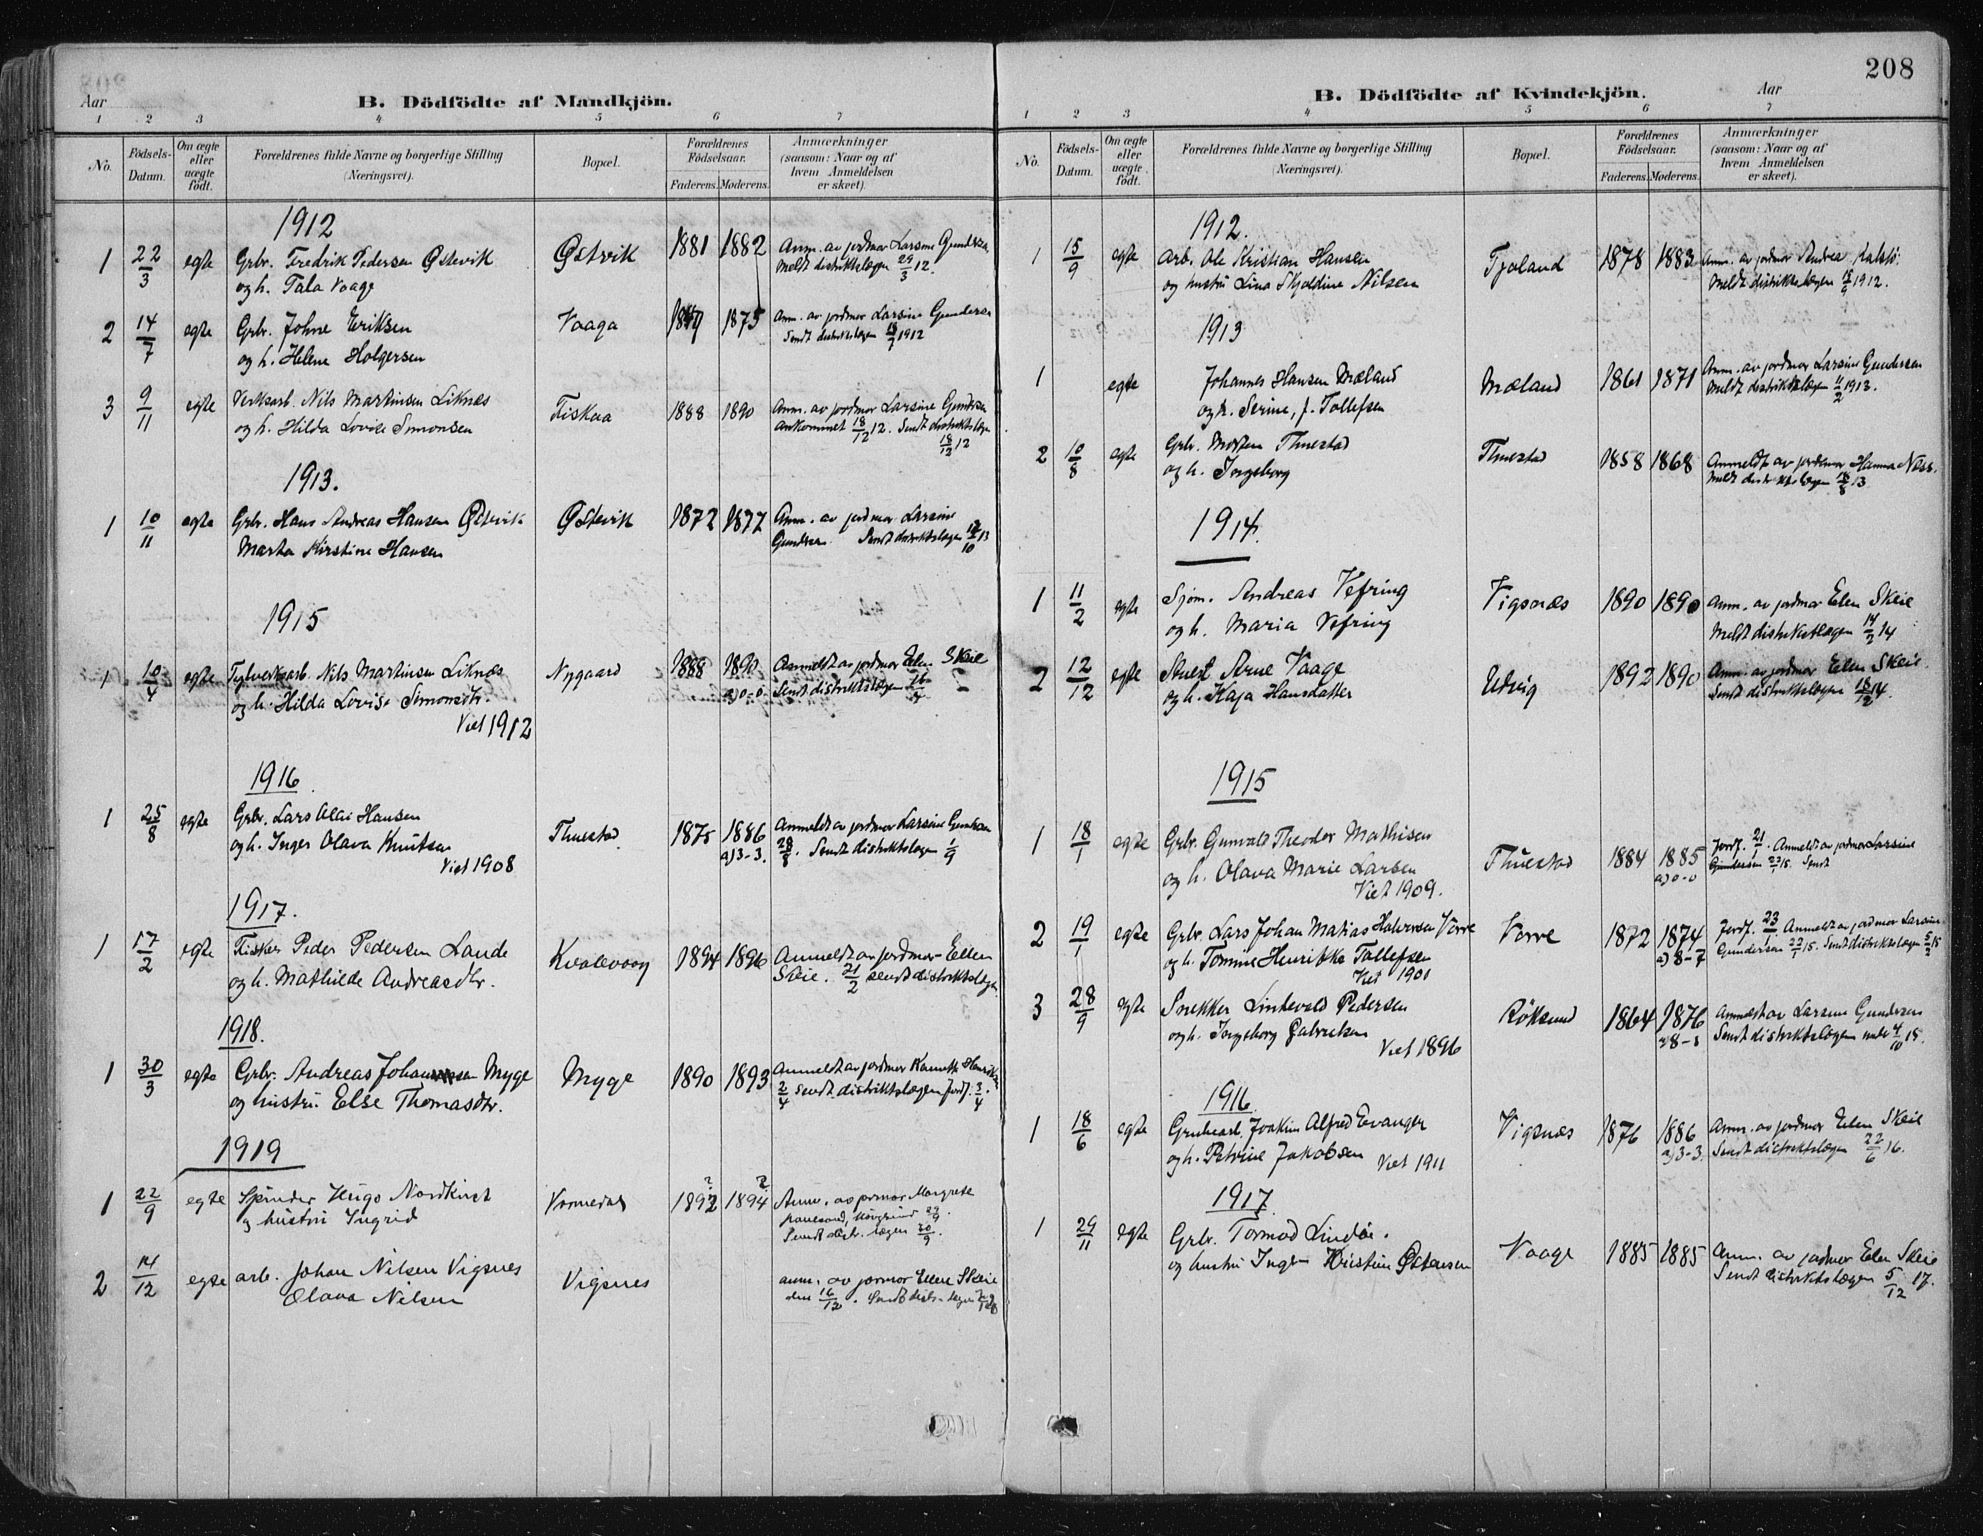 208
Aar
B. Dödfödte af Mandkjön.
1 2 3 4 5 6 7
No.
Födsels-Datum.
Om ægte eller uægte födt.
Forældrenes fulde Navne og borgerlige Stilling
(Næringsvei).
Bopæl.
Forældrenes Födselsaar.
Faderens. Moderens.
Anmærkninger
(saasom: Naar og af
hvem Anmeldelsen
er skeet).
1912
1 22/3 egte Grbr. Fredrik Pedersen Østevik Østvik 1881 1882 Anm. av jordmor Larsine Gundersen
og h. Tala Vaage Meldt distriktslægen 29/3 12.
2 14/7 egte Grbr. Johne Eriksen Vaaga 1875 Anm. av jordmor Larsine Gundersen
og h. Helene Holgersen Sendt distriktslægen 1912
3 9/11 egte Verksarb. Nils Martinsen Liknes Fiskaa 1888 1890 Anm. av jordmor Larsine Gundersen
og h. Hilda Lovise Simonsen Ankommet 18/12 12. Sendt distriktslægen
18/12 12
1913.
1 10/11 egte Grbr. Hans Andreas Hansen Østevik Østevik 1872 1877 Anm. av jordmor Larsine
Marta Kirstine Hansen Gundersen Sendt distriktslægen
1915
1 10/4 egte Nils Martinsen Liknæs Nygaard 1888 1890 Anmeldt av jordmor Elen Skeie
og h. Hilda Lovise Simonsdtr. a) 0-0 Sendt distriktslægen
Viet 1912
1916
1 25/8 egte Grbr. Lars Olai Hansen Thuestad 1875 1886 Anmeldt av jordmor Larsine
og h. Inger Olava Knutsen a) 3-3. 28/8. Sendt distriktslægen 1/9
Viet 1908
1917.
1 17/2 egte Fisker Peder Pedersen Lande Kvalevaag 1894 1896 Anmeldt av jordmor Ellen
og h. Mathilde Andreasdtr. Skeie. 21/2 sendt distriktslægen
1918.
1 30/3 egte Grbr. Andreas Myge Myge 1890 1893 Anmeldt av jordmor
og hustru Else Thomasdtr. 2/4 Sendt distriktslægen Jordf. 3/4.
1919
1 22/9 egte Hugo Nordkvist Vormedal 1892 ? 1894 ? Anm. av jormor Margrete
og hustru Ingrid
Sendt distr. lægen 30/9.
2 14/12 egte arb. Johan Nilsen Vigsnes Vigsnes anm. av jormor Ellen Skeie
Olava Nilsen den 16/12. Sendt distr. lægen
B. Dödfödte af Kvindekjön.
Aar
1 2 3 4 5 6 7
No.
Födsels-Datum.
Om ægte eller uægte födt.
Forældrenes fulde Navne og borgerlige Stilling
(Næringsvei).
Bopæl.
Forældrenes Födselsaar.
Faderens. Moderens.
Anmærkninger
(saasom: Naar og af
hvem Anmeldelsen
er skeet).
1912.
1 15/9 egte Arb. Ole Kristian Hansen Tjoland 1878 1883 Anm. av jordmor Andrea Kalstö.
og hustru Lina Skjoldine Nilsen Meldt distriktslægen 18/9 1912.
1913
1 egte Johannes Hansen Mæland Mæland 1861 1871 Anm. av jordmor Larsine Gundersen
og h. Serine, f. Tollefsen Meldt distriktslægen 11/2 1913.
2 10/8 egte Grbr. Morten Thuestad Thuestad 1858 1868 Anmeldt av jordmor Hanna Næss.
og h. Ingeborg Meldt distriktslægen 18/8 13.
1914.
1 11/2 egte Sjöm. Andreas Vefring Vigsnæs 1890 1890 Anm. av jordmor Elen Skeie
og h. Maria Vefring Meldt distriktslægen 14/2 14
2 12/12 egte Arne Vaage Udvig 1892 1890 Anm. av jordmor Elen Skeie.
og h. Kaja Hansdatter Sendt distriktslægen 18/12 14.
1915
1 18/1 egte Grbr. Gunvald Theodor Mathisen Thuestad 1884 1885 Jordf. 21/1. Anmeldt av jordmor Larsine
og h. Olava Marie Larsen a) 0-0 Gundersen 22/1 15. Sendt
Viet 1909.
2 19/1 egte Grbr. Lars Johan Matias Halvorsen Vorre Vorre 1872 1874 Jordf. 23/1 Anmeldt av jordmor Larsine
og h. Tomine Henrikke Tollefsen a) 8-7 Gundersen 22/1 15. Sendt distriktslægen 5/2 15
Viet 1901
3 28/9 egte Snekker Lindevald Pedersen Röksund 1864 1876 Anmeldt av Larsine Gundersen
og h. Ingeborg Gabrielsen Sendt distriktslægen 4/10 15.
Viet 1896
1916
1 18/6 egte Grubearb. Joakim Alfred Evanger Vigsnæs 1876 1886 Anm. av jordmor Elen Skeie
og h. Petrine Jakobsen a) 3-3. Sendt distriktslægen 22/6 16.
Viet 1911
1917.
1 29/11 egte Grbr. Tormod Lindöe. Vaage 1885 1885 Anm. av jordmor Elen Skeie
og hustru Inger Kristine Østensen Sendt distriktslægen 5/12 17.